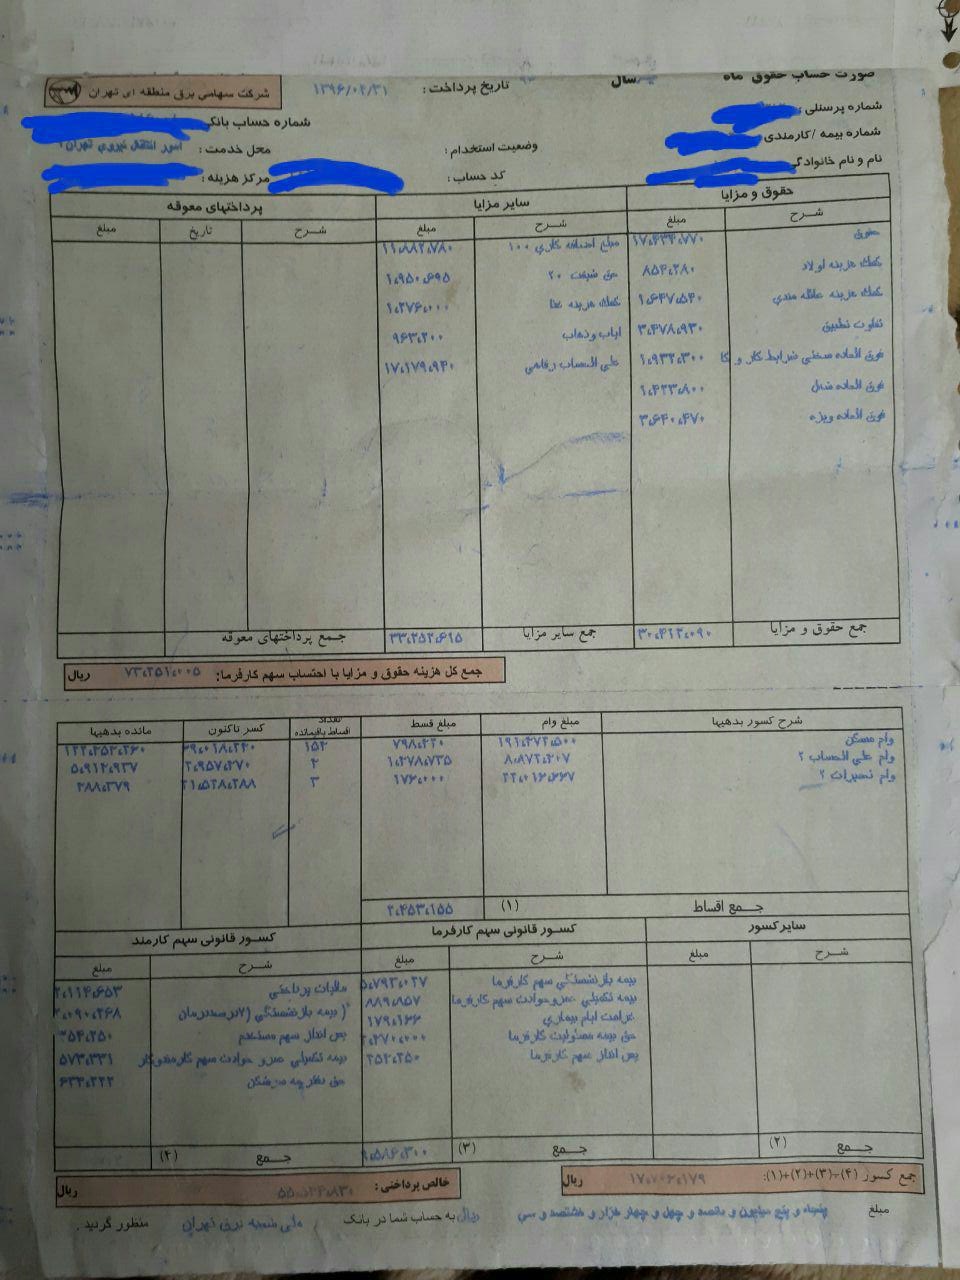 صورت حساب حقوق ماه سال
تاریخ پرداخت : ۱۳۹۶/۰۲/۳۱
شرکت سهامی برق منطقه ای تهران
شماره پرسنلی :
شماره حساب بانکی
شماره بیمه /کارمندی
وضعیت استخدام :
محل خدمت : امور انتقال نیروی تهران
نام و نام خانوادگی
کد حساب :
مرکز هزینه :
حقوق و مزایا سایر مزایا پرداختهای معوقه
شـرح مبلغ شـرح مبلغ شـرح تاریخ مبلغ
حقوق ۱۷،۴۳۴،۷۷۰ مبلغ اضافه کاری ۱۰۰ ۱۱،۸۸۲،۷۸۰
کمک هزینه اولاد ۸۵۴،۲۸۰ حق شیفت ۲۰ ۱،۹۵۰،۶۹۵
کمک هزینه عائله مندی ۱،۶۴۷،۵۴۰ کمک هزینه غذا ۱،۲۷۶،۰۰۰
تفاوت تطبیق ۳،۴۷۸،۹۳۰ ایاب وذهاب ۹۶۳،۲۰۰
فوق العاده سختی شرایط کار و کا ۱،۹۳۲،۳۰۰ علی الحساب رفاهی ۱۷،۱۷۹،۹۴۰
فوق العاده شغل ۱،۴۲۳،۸۰۰
فوق العاده ویژه ۳،۶۴۰،۴۷۰
جمع حقوق و مزایا ۳۰،۴۱۲،۰۹۰ جمع سایر مزایا ۳۳،۲۵۲،۶۱۵ جـمع پرداختهای معوقه
جمع کل هزینه حقوق و مزایا با احتساب سهم کارفرما: ۷۳،۲۵۱،۰۰۵ ریال
شرح کسور بدهیها مبلغ وام مبلغ قسط تعداد اقساط باقیمانده کسر تاکنون مانده بدهیها
وام مسکن ۱۹۱،۲۷۲،۵۰۰ ۷۹۸،۴۲۰ ۱۵۲ ۱۲۲،۲۵۲،۲۶۰
وام علی الحساب ۲ ۸،۸۷۲،۲۰۷ ۱،۴۷۸،۷۳۵ ۴ ۲،۹۵۷،۲۷۰ ۵،۹۱۴،۹۳۷
وام تعمیرات ۲ ۲۲،۰۱۶،۶۶۷ ۱۷۶،۰۰۰ ۳ ۲۱،۵۲۸،۲۸۸ ۴۸۸،۳۷۹
جـمع اقساط (۱) ۲،۴۵۳،۱۵۵
سایر کسور کسـور قانونی سهم کارفرما کسـور قانونی سهم کارمند
شـرح مبلغ شـرح مبلغ شـرح مبلغ
بیمه بازنشستگی سهم کارفرما مالیات پرداختی
بیمه تکمیلی عمروحوادث سهم کارفرما ۸۸۹،۸۵۷ بیمه بازنشستگی (۷درصددرمان
غرامت ایام بیماری ۱۷۹،۱۶۶ پس انداز سهم مستخدم
حق بیمه مسئولیت کارفرما بیمه تکمیلی عمرو حوادث سهم کارمندوکار ۵۷۳،۳۳۱
پس انداز سهم کارفرما
جـمع (۲) جـمع (۳) ۹،۵۸۶،۳۰۰ جـمع (۴)
جمع کسور (۴)+(۳)+(۲)+(۱): ریال
خالص پرداختی : ۵۵،۵۴۴،۸۳۰ ریال
مبلغ پنجاه و پنج میلیون و پانصد و چهل و چهار هزار و هشتصد و سی ریال به حساب شما در بانک ملی شعبه برق تهران منظور گردید .